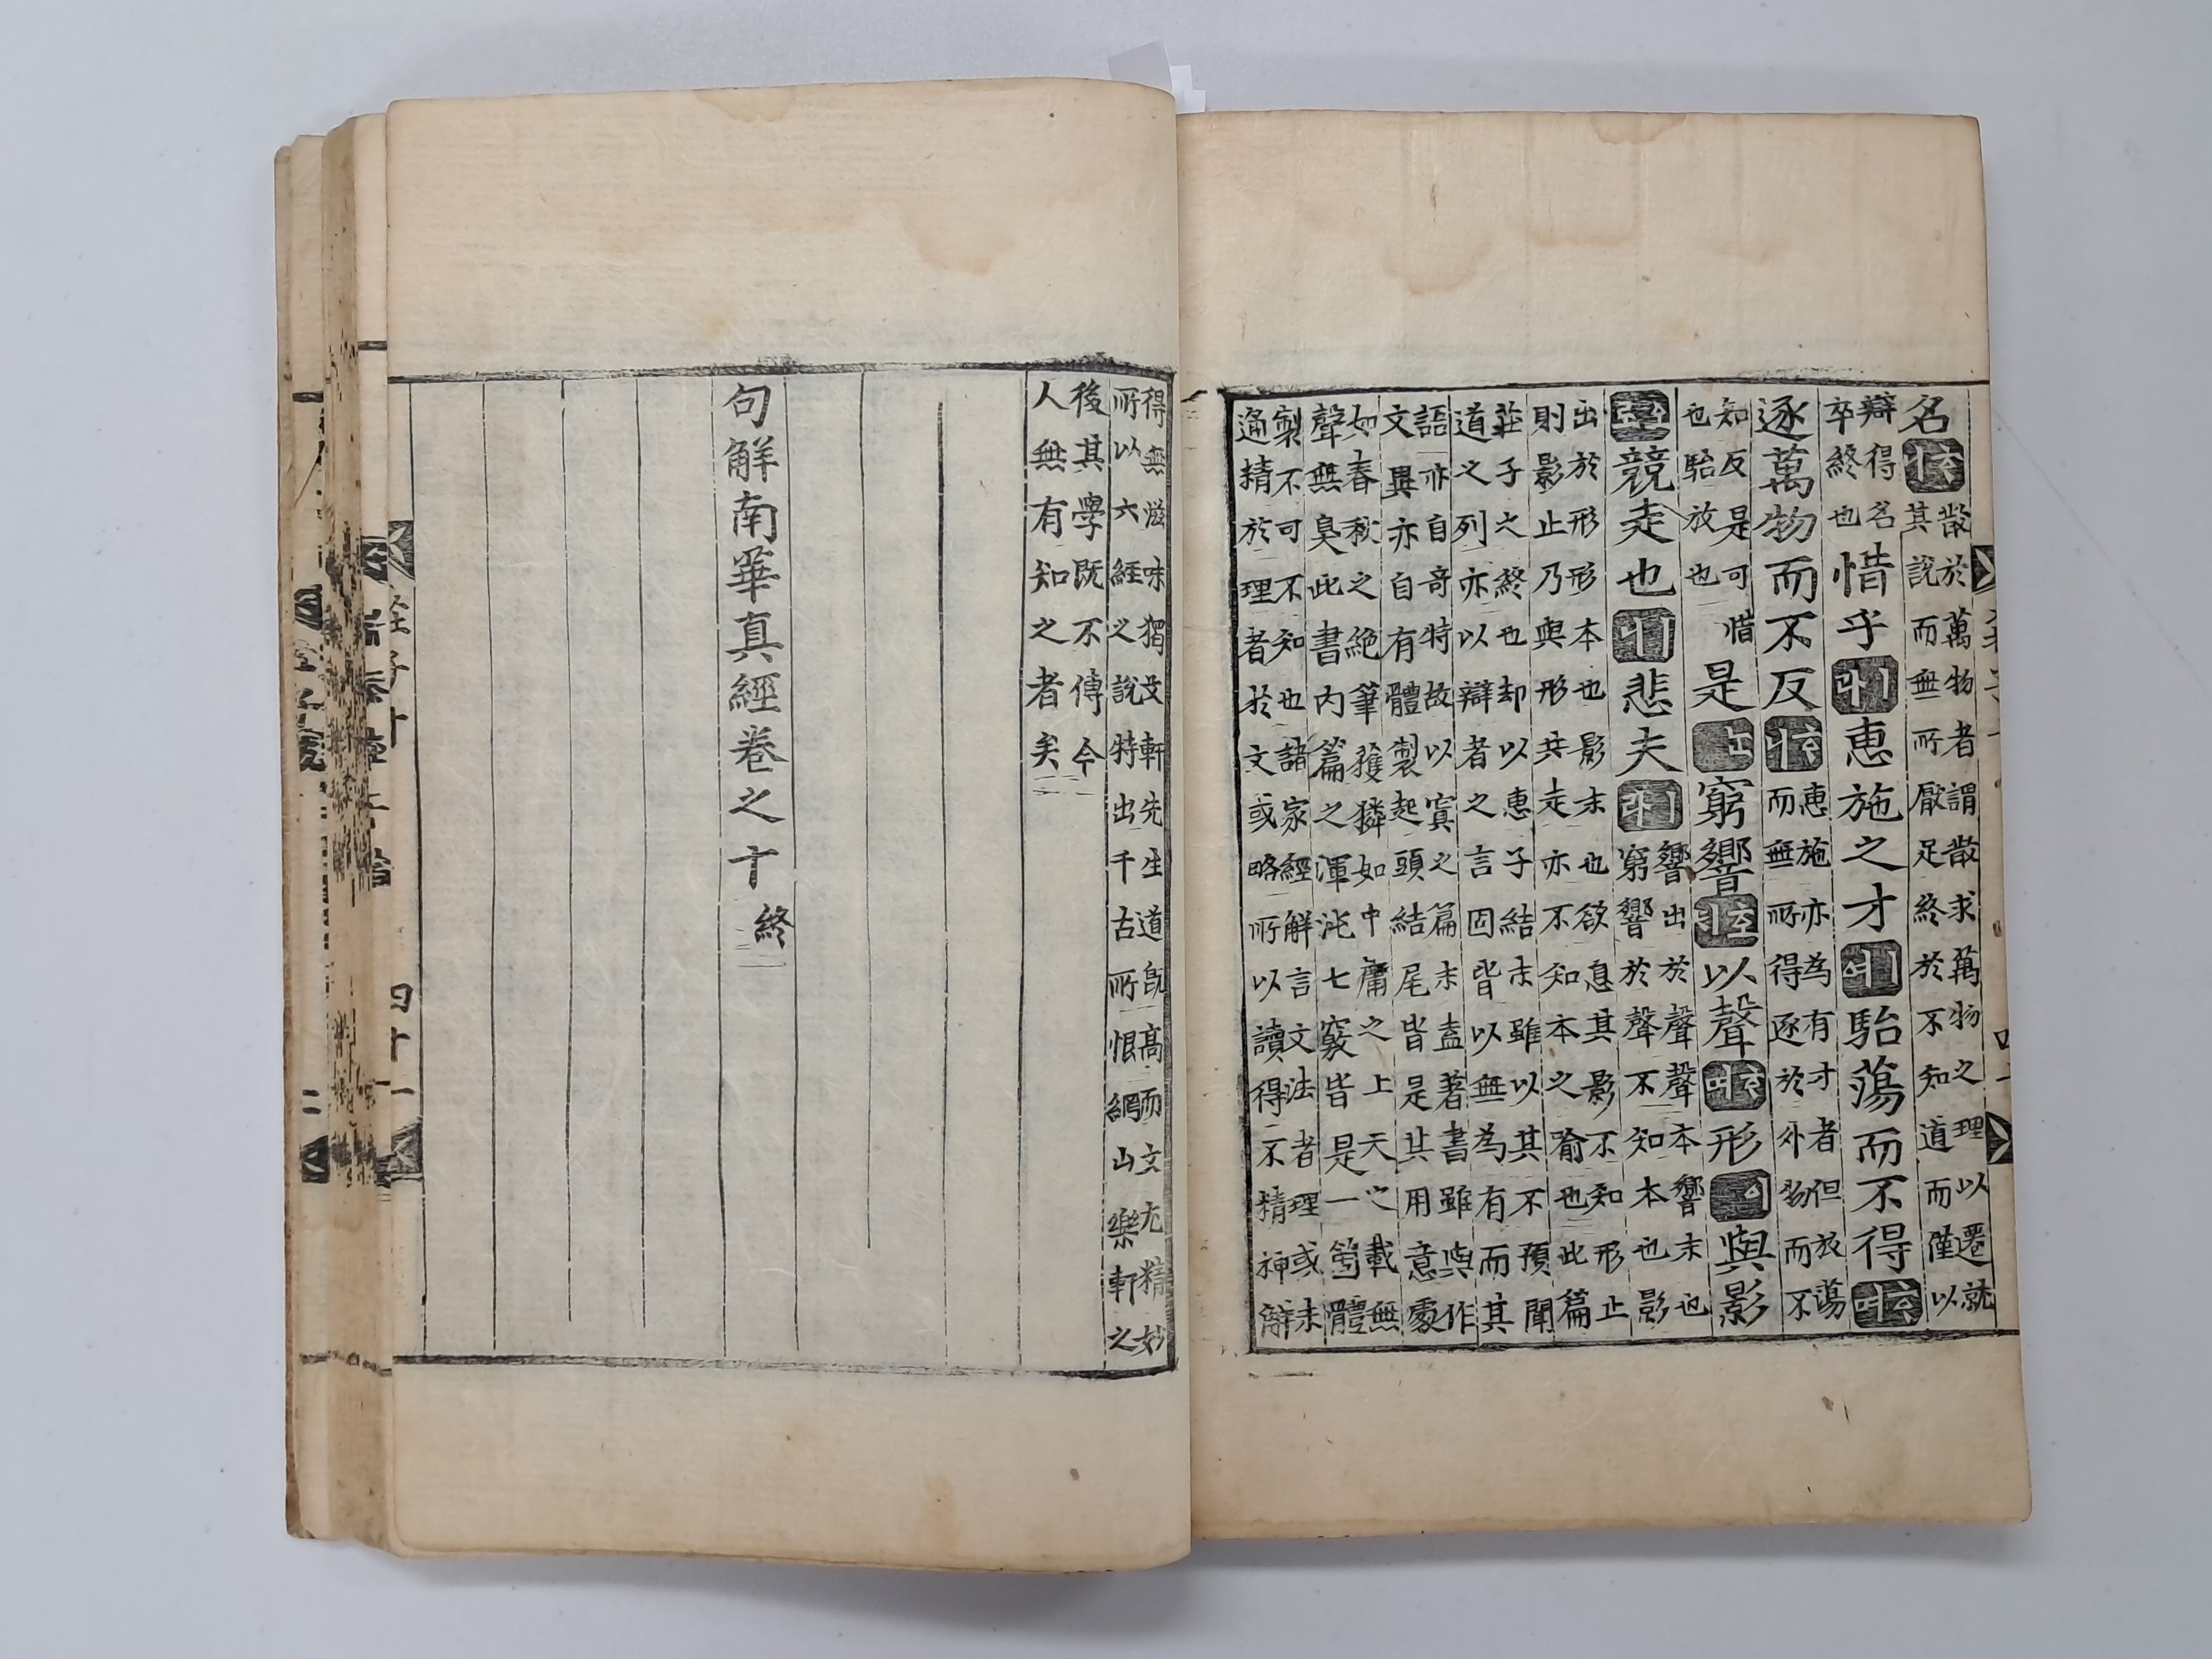 名
散於萬物者謂散求萬物之理以遷就
其說而無所厭足終於不知道而僅以
辯得名
卒終也
惜乎
惠施之才
駘蕩而不得
逐萬物而不反
惠施亦為有才者但放蕩
而無所得逐於外物而不
知反是可惜
也駘放也
是
窮響
以聲
形
與影
競走也
悲夫
響出於聲聲本響末也
窮響於聲不知本也影
出於形形本也影末也欲息其影不知形止
則影止乃與形共走亦不知本之喻也此篇
莊子之終也却以惠子結末雖以其不預聞
道之列亦以辯者之言固皆以無為有而其
語亦自奇特故以寘之篇末盍著書雖與作
文異亦自有體製起頭結尾皆是其用意處
如春秋之絕筆獲麟如中庸之上天之載無
聲無臭此書內篇之渾沌七竅皆是一箇體
製不可不知也諸家經解言文法者理或未
通精於理者於文或略所以讀得不精神解
得無滋味獨艾軒先生道既高而文尤精妙
所以六經之說特出千古所恨網山樂軒之
後其學既不傳今
人無有知之者矣
句解南華真經卷之十 終
莊子十 四十一